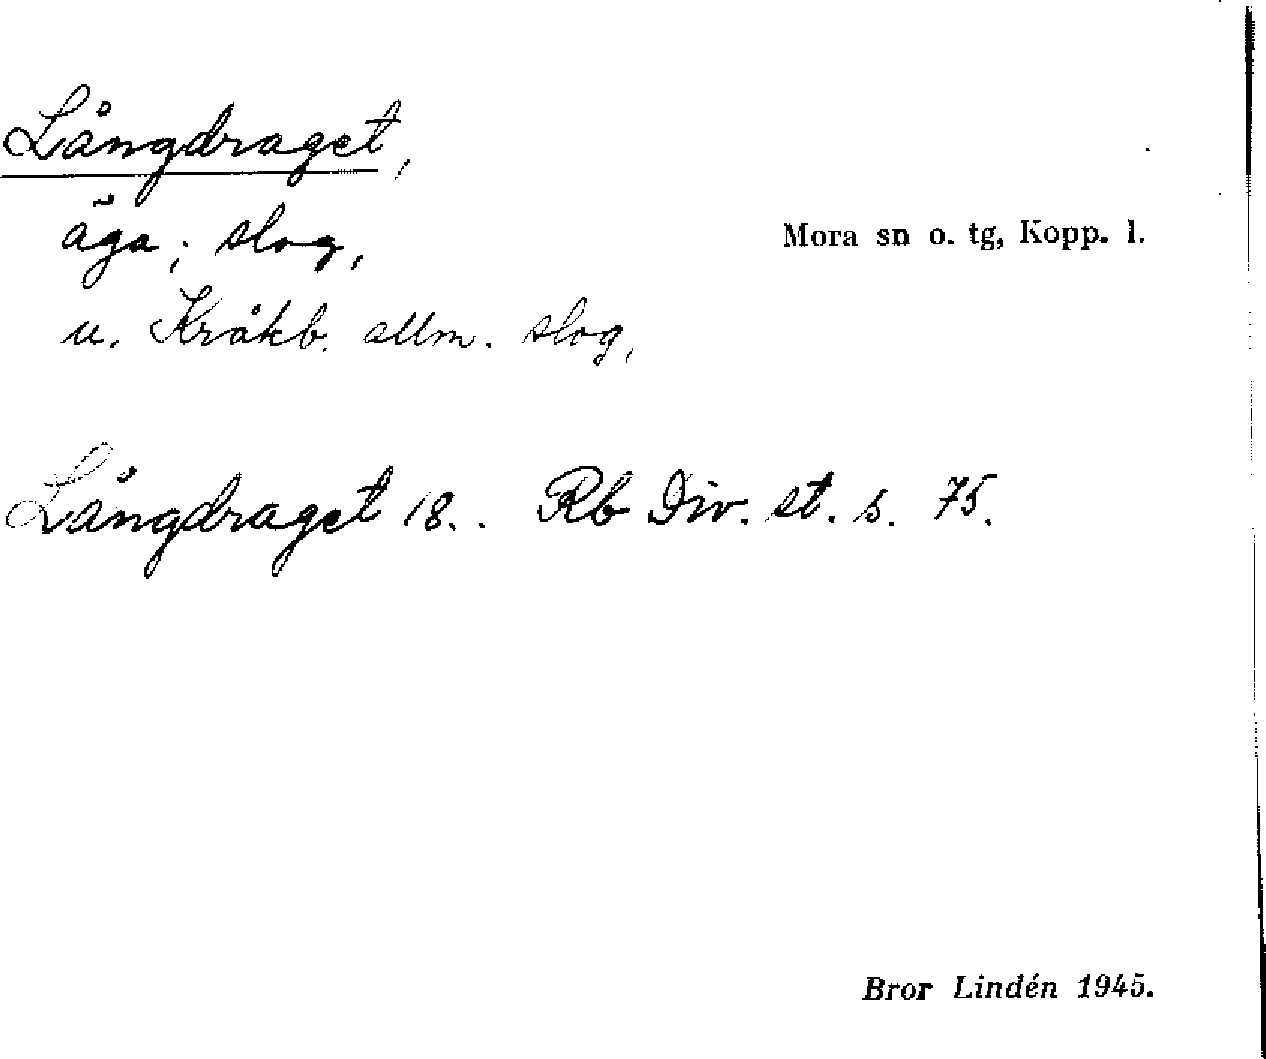 Långdraget,
äga; slog,
Mora sn o. tg, Kopp. l.
u. Kråkb. allm. slog,
Långdraget 18.. Rb Div. st. s. 75.
Bror Lindén 1945.